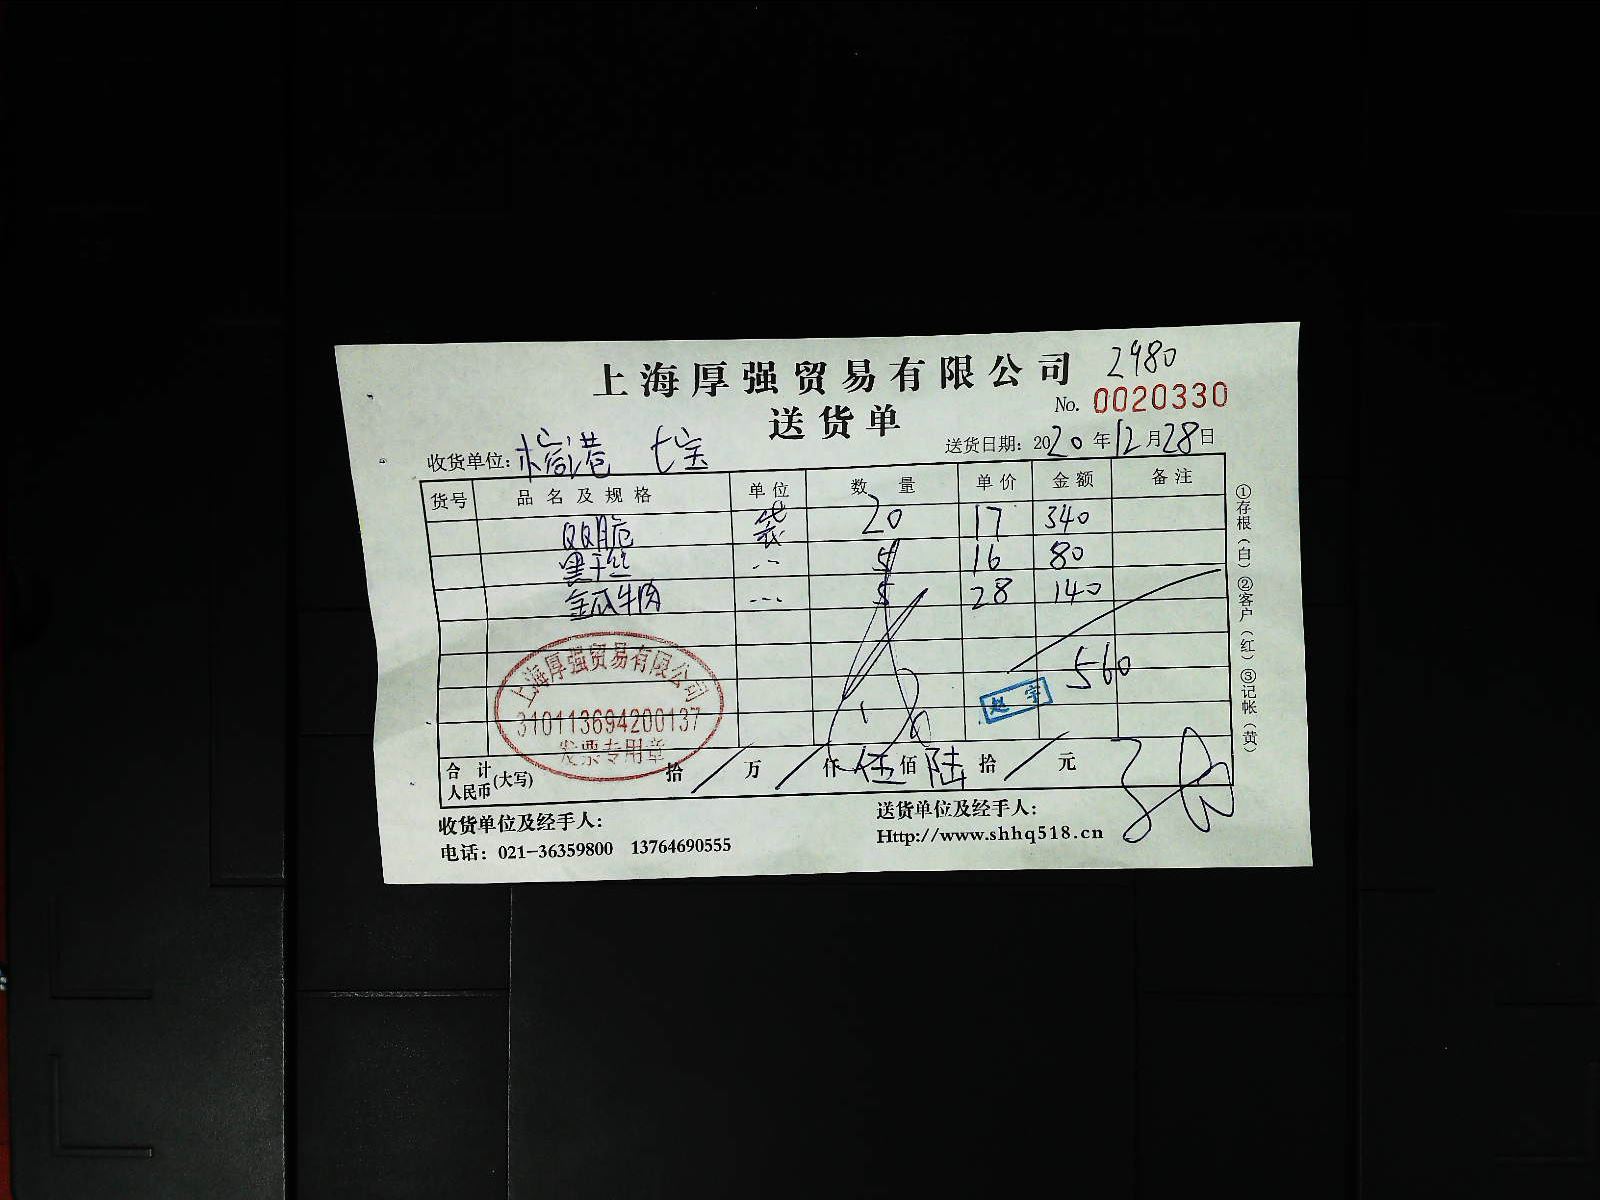 上海厚强贸易有限公司 2980
No. 0020330
送货单
收货单位: 檐港 七宝 送货日期: 2020年12月28日
货号 品名及规格 单位 数量 单价 金额 备注
QQ脆 袋 20 17 340
黑千丝 … 5 16 80
金瓜牛肉 … 5 28 140
560
上海厚强贸易有限公司
310113694200137
发票专用章
赵宇
合计人民币(大写) 拾 / 万 / 仟 伍 佰 陆 拾 / 元
收货单位及经手人: 送货单位及经手人:
电话: 021-36359800 13764690555 Http://www.shhq518.cn
①存根(白) ②客户(红) ③记帐(黄)